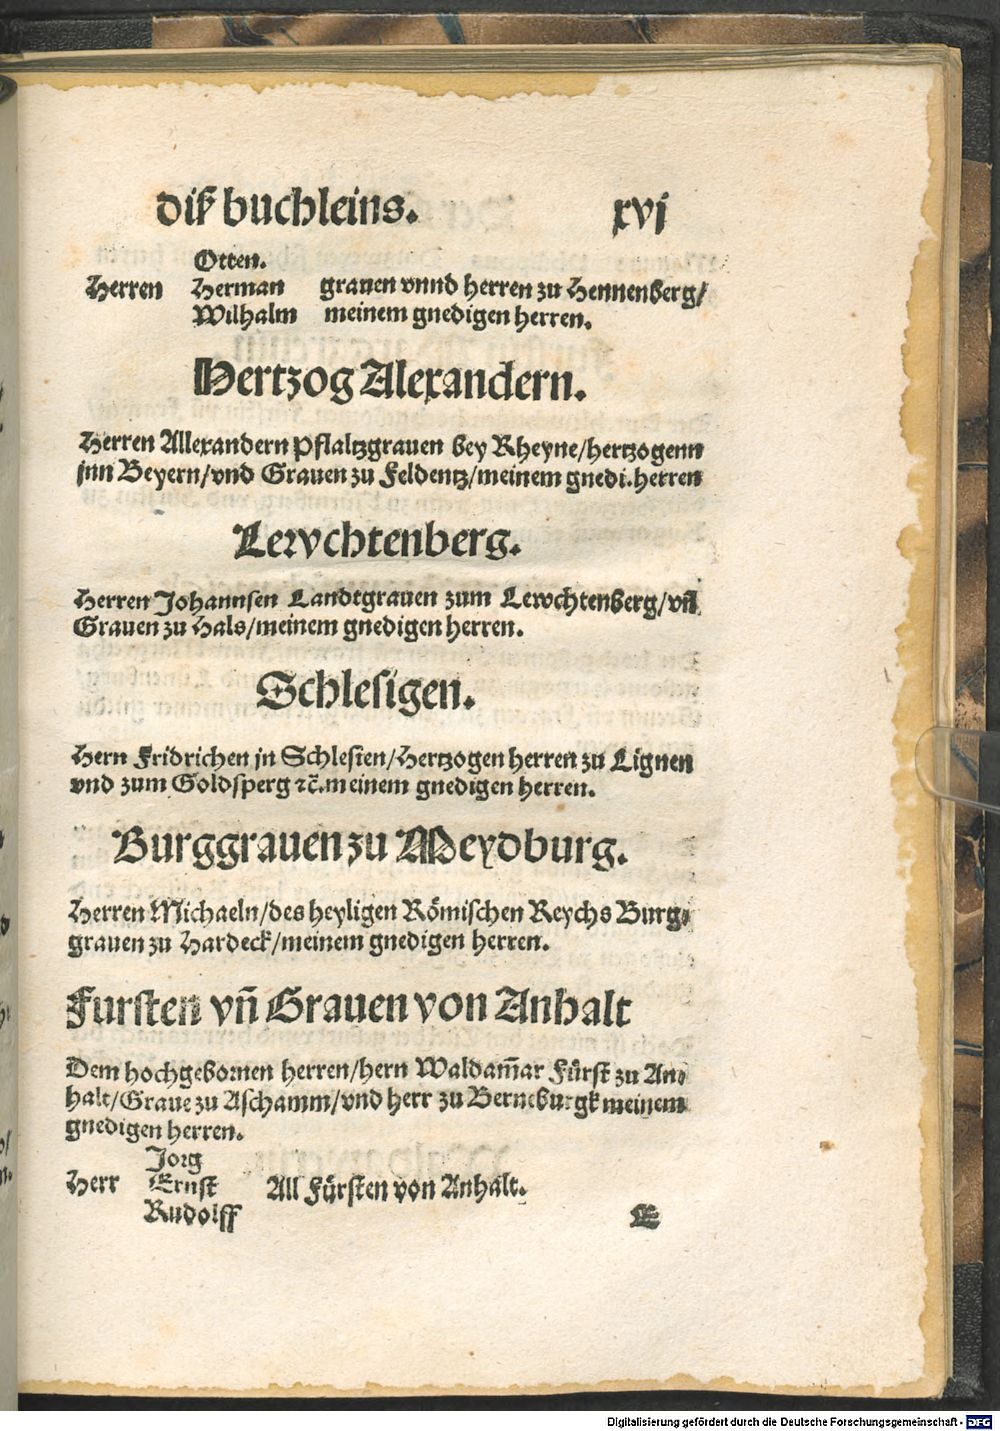 diſz buchleins. xvj
Otten.
Herren Herman grauen vnnd herren zu Hennenberg/
Wilhalm meinem gnedigen herren.
Hertzog Alexandern.
Herren Allexandern Pflaltzgrauen bey Rheyne/hertzogenn
jnn Beyern/vnd Grauen zu Feldentz/meinem gnedi.herren
Lewchtenberg.
Herren Johannsen Landtgrauen zum Lewchtenberg/vñ
Grauen zu Hals/meinem gnedigen herren.
Schlesigen.
Hern Fridrichen jn Schlesien/Hertzogen herren zu Lignen
vnd zum Goldsperg ⁊c̄.meinem gnedigen herren.
Burggrauen zu Meydburg.
Herren Michaeln/des heyligen Römischen Reychs Burg⸗
grauen zu Hardeck/meinem gnedigen herren.
Fursten vñ Grauen von Anhalt
Dem hochgebornen herren/hern Waldam̄ar Fürst zu An⸗
halt/Graue zu Aschamm/vnd herr zu Berneburgk meinem
gnedigen herren.
Jorg
Herr Ernst All Fürsten von Anhalt.
Rudolff
E
Digitalisierung gefördert durch die Deutsche Forschungsgemeinschaft - DFG